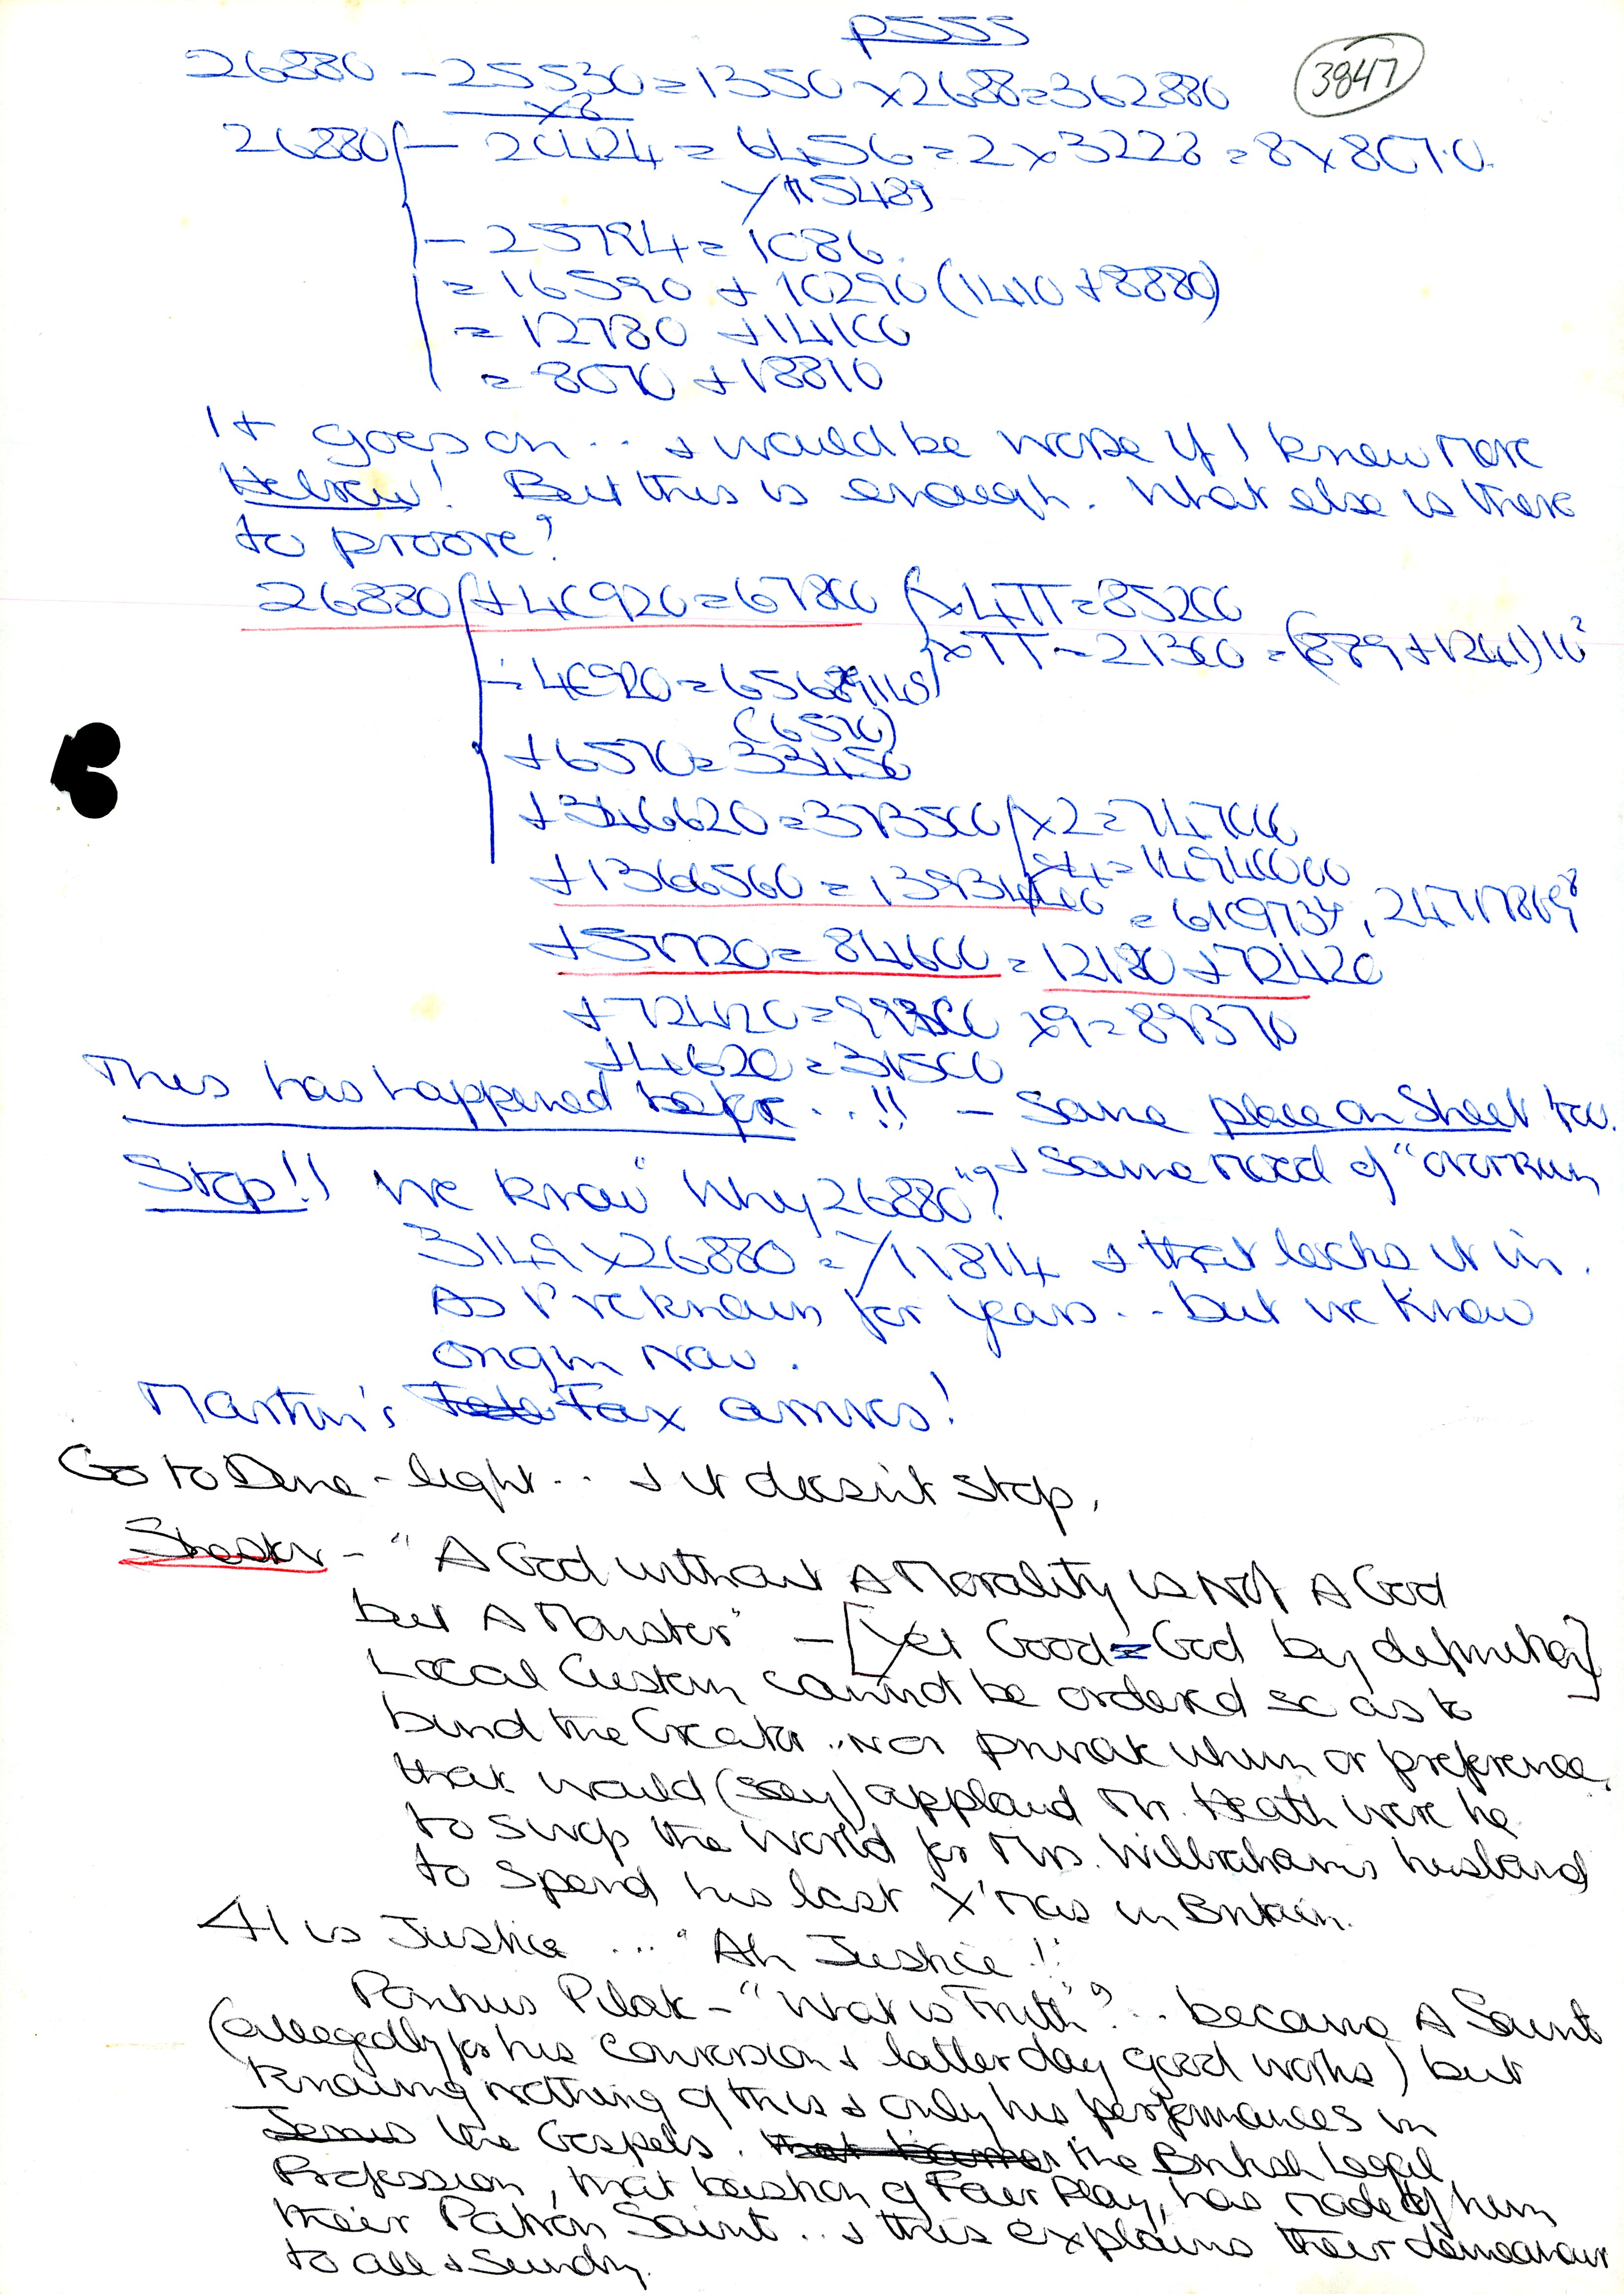 p555
3847
26880 - 25530 = 1350 x 2688 = 362880
x8
26880 - 20424 = 6456 = 2 x 3228 = 8 x 807.0
- 25794 = 1086.
= 16590 + 10290 (1410 + 8880)
= 12780 + 14100
= 8070 + 18810
It goes on ... & would be worse if I knew more
Hebrew! But this is enough. What else is there
to proove?
26880 + 40920 = 67800 x 4π = 85200
x π = 21300 = (889 + 1241) 10²
÷ 40920 = 6568
(6570)
+ 6570 = 33450
+ 346620 = 373500 x 2 = 747000
x 4 = 1494000
+ 1366560 = 13934
= 6109734,
+ 57720 = 84600 = 12180 + 72420
+ 72420 = 99300 x 9 = 89370
+ 4620 = 31500
This has happened before ..!! - Same place on Sheet too.
& Same need of "overrun
Stop!! We know "Why 26880"?
3149 x 26880 = 11814 & that locks it in.
As I've known for years .. but we know
origin Now.
Martin's Fax arrives!
Go to Dene - light .. & it doesn't stop.
- "A God without A Morality is Not A God
but A Monster" - [Yet Good = God by definition]
Local Custom cannot be ordered so as to
bind the Creator .. Nor private whim or preference,
that would (say) applaud Mr. Heath were he
to swop the World for Mrs. Willraham's husband
to spend his last X'mas in Britain.
41 is Justice ... "Ah Justice!"
Pontius Pilate - "What is Truth"? .. became A Saint
(allegedly for his conversion & latter day good works) but
Knowing nothing of this & only his performances in
Jesus the Gospels. the British Legal
Profession, that bastion of Fair Play, has made of him
their Patron Saint .. & this explains their demeanour
to all & Sundry.